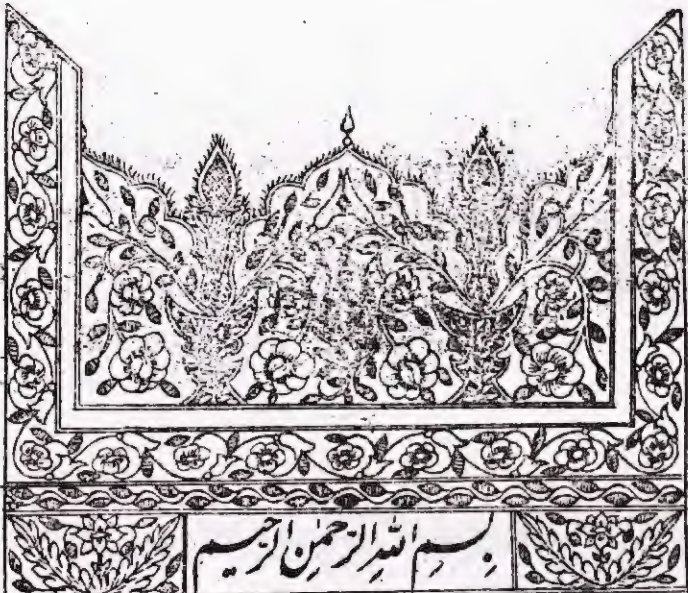 بِسمِ اللهِ الرَّحمٰنِ الرَّحِيم